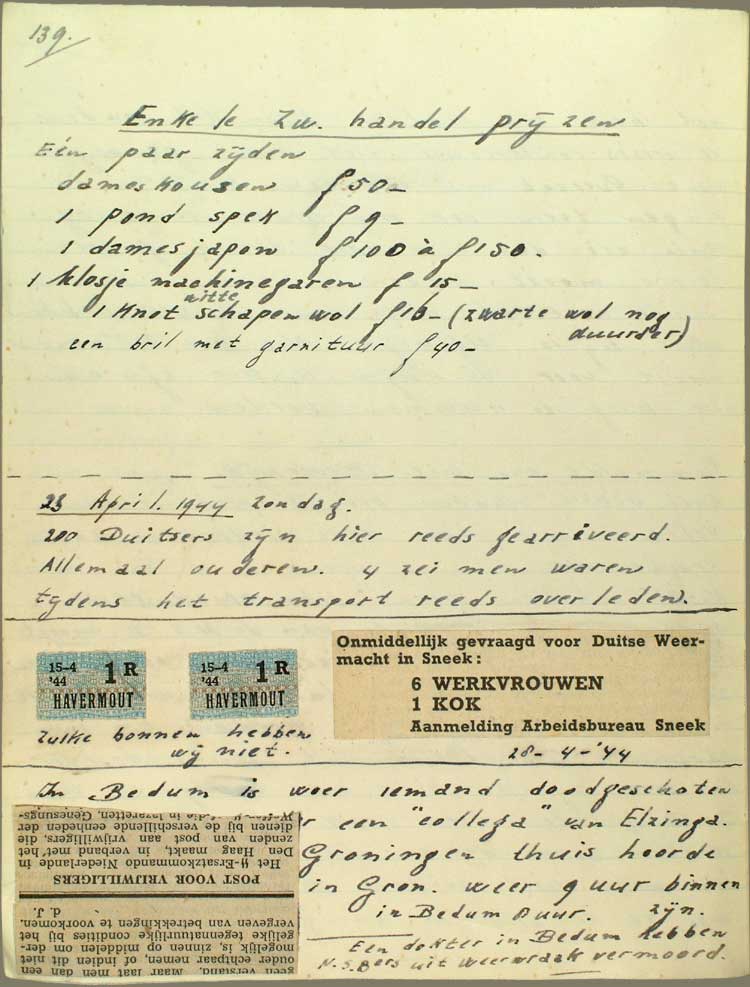 139.
Enkele zw. handel prijzen
Eén paar zijden
dameskousen f 50-
1 pond spek f 9-
1 damesjapon f 100 à f 150.
1 klosje machinegaren f 15-
witte
1 knot schapenwol f 16- (zwarte wol nog
duurder)
een bril met garnituur f 40-
23 April. 1944 zondag.
200 Duitsers zijn hier reeds gearriveerd.
Allemaal ouderen. 4 zei men waren
tijdens het transport reeds overleden.
15-4 1 R
'44
HAVERMOUT
15-4 1 R
'44
HAVERMOUT
Zulke bonnen hebben
wij niet.
Onmiddellijk gevraagd voor Duitse Weer-
macht in Sneek:
6 WERKVROUWEN
1 KOK
Aanmelding Arbeidsbureau Sneek
28-4-'44
In Bedum is weer iemand doodgeschoten
een "collega" van Elzinga.
Groningen thuis hoorde
in Gron. weer 9 uur binnen
in Bedum 8 uur. zijn.
Een dokter in Bedum hebben
N.S.Bers uit weerwraak vermoord.
geen verstand. Maar laat men dan een
ouder echtpaar nemen, of indien dit niet
mogelijk is, zinnen op middelen om der-
gelijke tegennatuurlijke condities bij het
vergeven van betrekkingen te voorkomen.
d. J.
POST VOOR VRIJWILLIGERS
Het SS-Ersatzkommando Niederlande in
Den Haag maakt, in verband met het
zenden van post aan vrijwilligers, die
dienen bij de verschillende eenheden der
die in lazaretten, Genesungs-